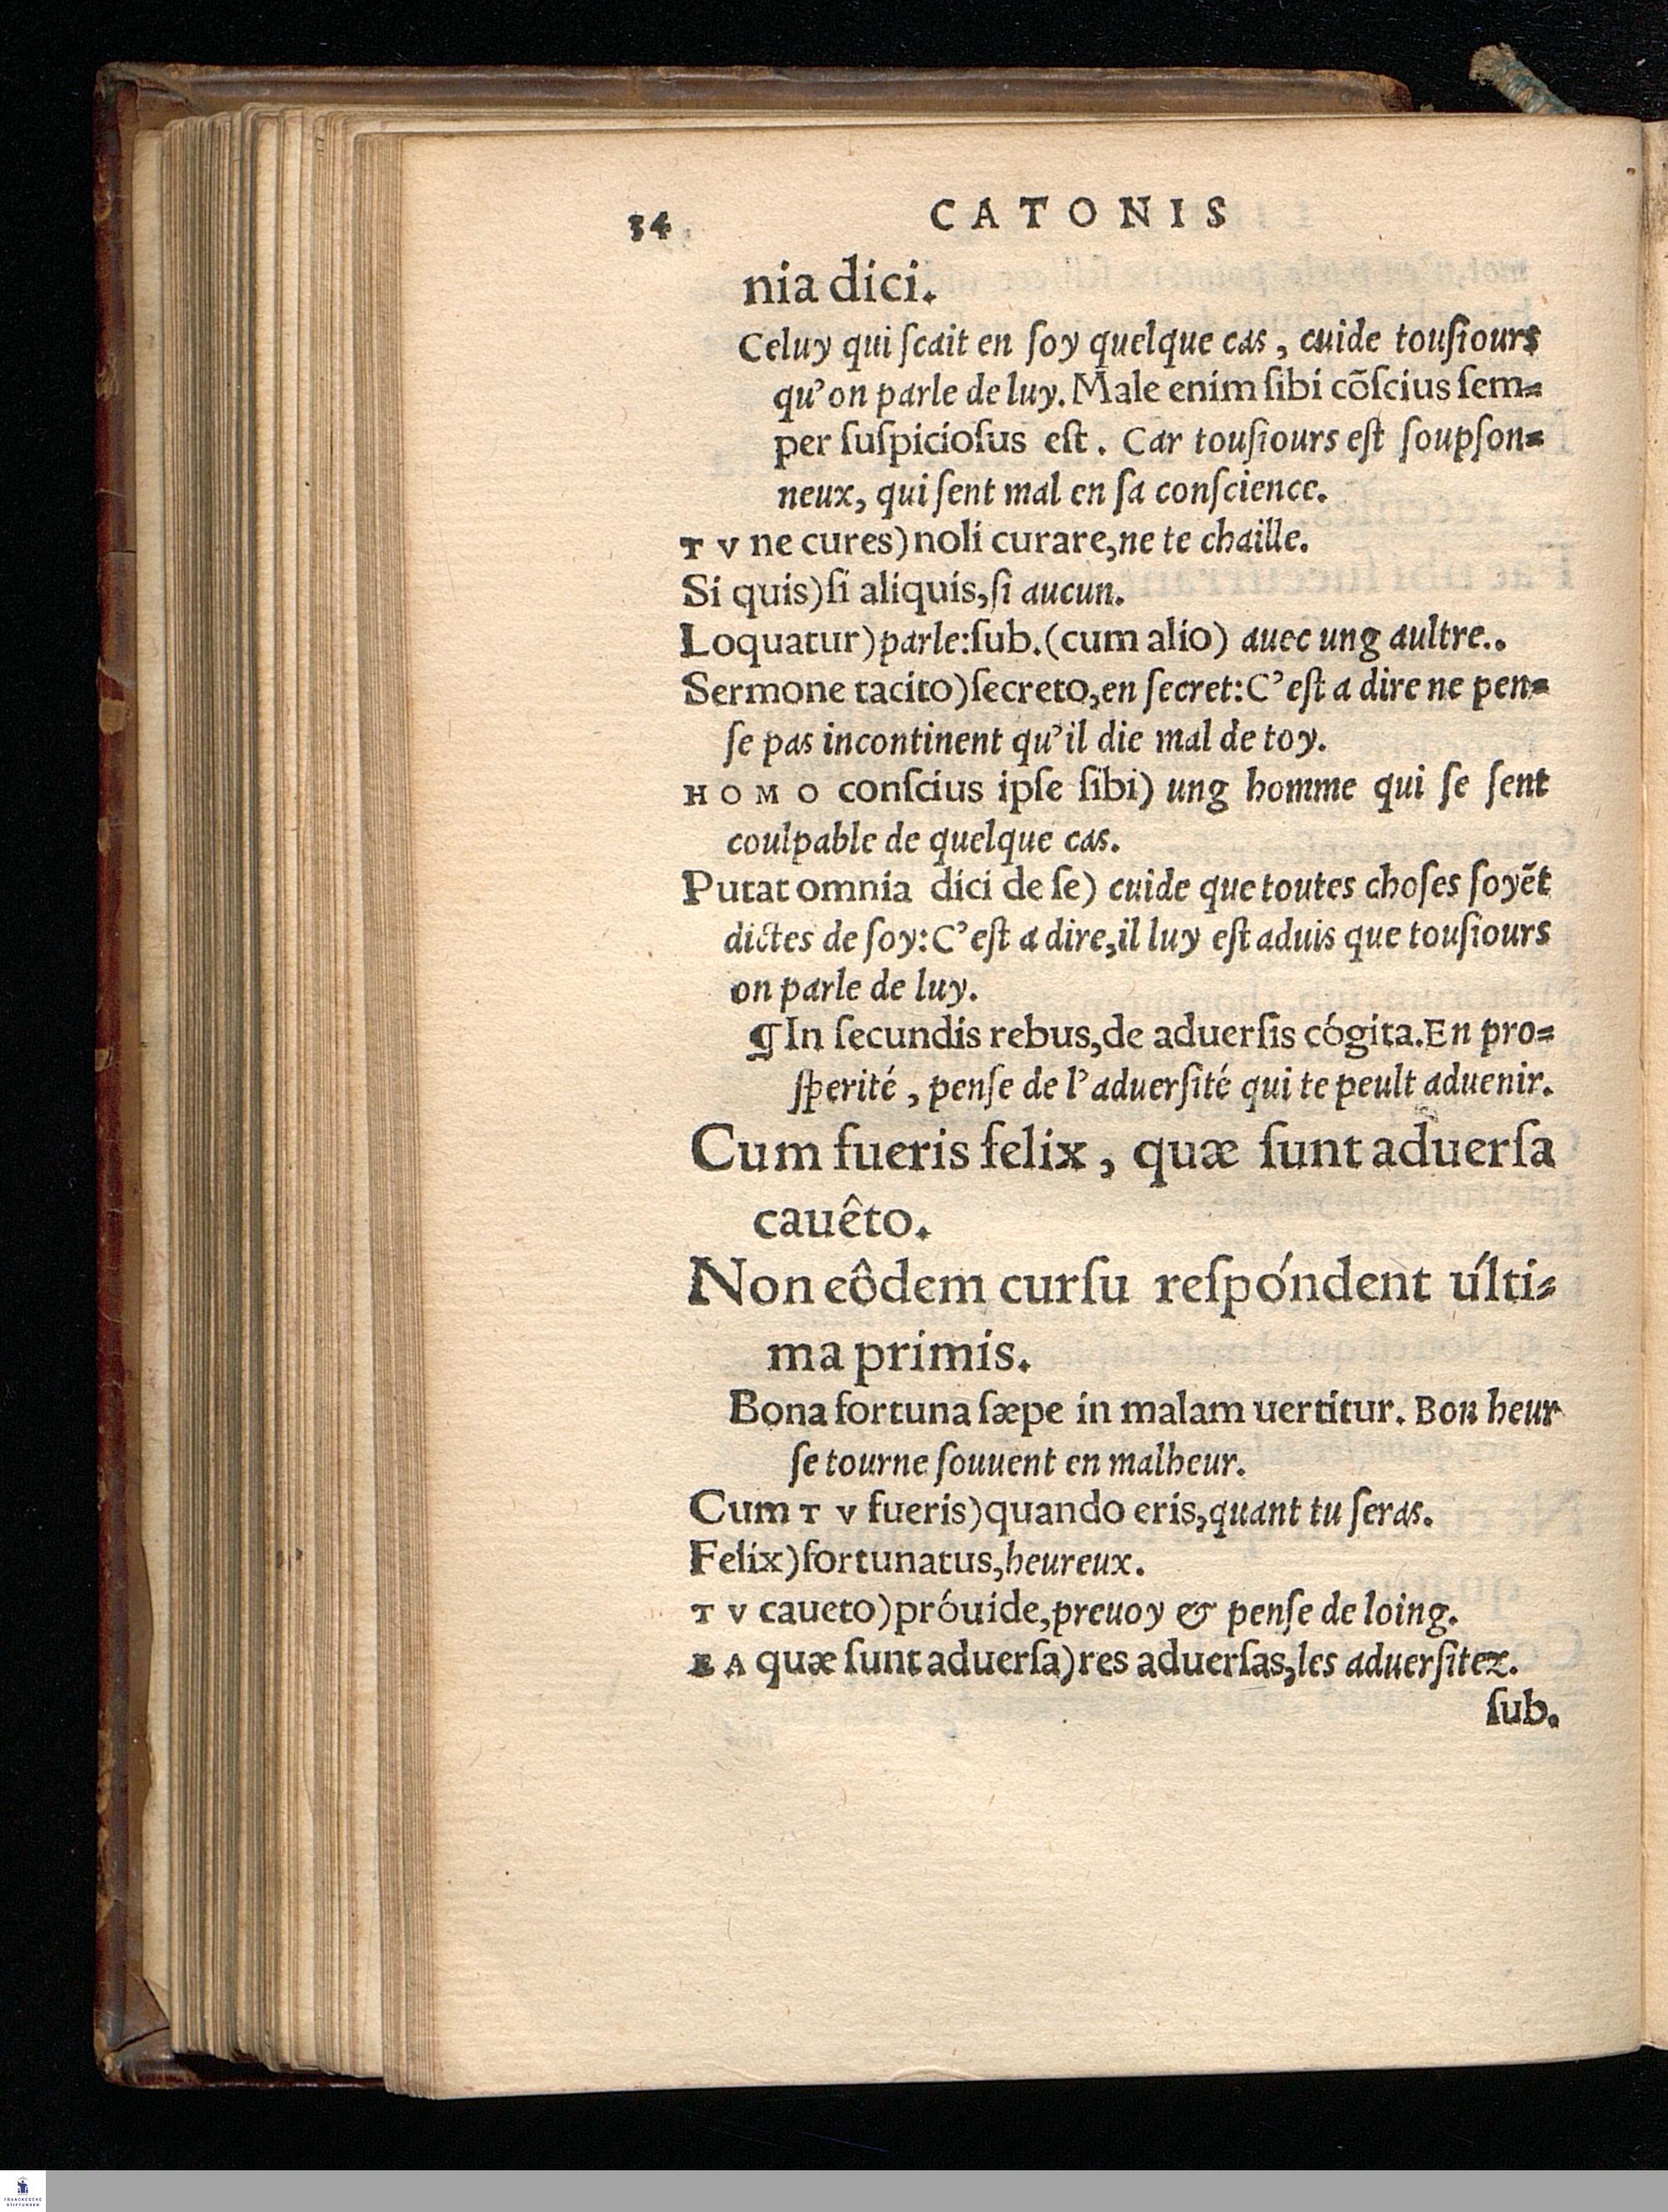 34 CATONIS
nia dici.
Celuy qui ſcait en ſoy quelque cas, cuide touſiours
qu'on parle de luy. Male enim ſibi cõſcius ſem-
per ſuſpicioſus eſt. Car touſiours eſt ſoupſon-
neux, qui ſent mal en ſa conſcience.
TV ne cures) noli curare, ne te chaille.
Si quis) ſi aliquis, ſi aucun.
Loquatur) parle: ſub. (cum alio) auec ung aultre..
Sermone tacito) ſecreto, en ſecret: C'eſt a dire ne pen-
ſe pas incontinent qu'il die mal de toy.
HOMO conſcius ipſe ſibi) ung homme qui ſe ſent
coulpable de quelque cas.
Putat omnia dici de ſe) cuide que toutes choſes ſoyẽt
dictes de ſoy: C'eſt a dire, il luy eſt aduis que touſiours
on parle de luy.
¶In ſecundis rebus, de aduerſis cógita. En pro-
ſperité, penſe de l'aduerſité qui te peult aduenir.
Cum fueris felix, quæ ſunt aduerſa
cauêto.
Non eôdem curſu reſpóndent últi-
ma primis.
Bona fortuna ſæpe in malam uertitur. Bon heur
ſe tourne ſouuent en malheur.
Cum TV fueris) quando eris, quant tu ſeras.
Felix) fortunatus, heureux.
TV caueto) próuide, preuoy & penſe de loing.
EA quæ ſunt aduerſa) res aduerſas, les aduerſitez.
ſub.
FRANCKESCHE
STIFTUNGEN